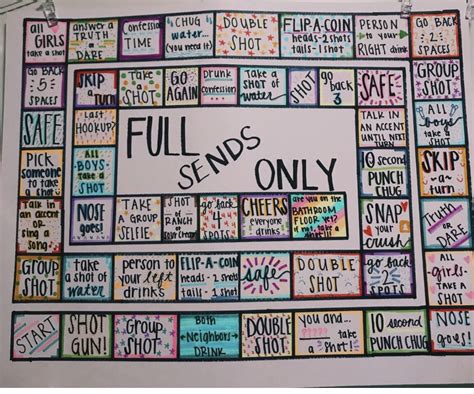 all
GIRLS
take a shot
answer a
TRUTH
or
DARE
Confession
TIME
CHUG
water...
(you need it)
DOUBLE
SHOT
FLIP-A-COIN
heads-2 shots
tails-1 shot
PERSON
to your
RIGHT drink
GO BACK
2
SPACES
GO BACK
5
SPACES
SKIP
a
TURN
Take
a
SHOT
GO
AGAIN
Drunk
confession
Take a
SHOT of
water
SHOT
go
back
3
SAFE
GROUP
SHOT
SAFE
Last
HOOKUP?
TALK IN
AN ACCENT
UNTIL NEXT
TURN
ALL
boys
take a
SHOT
FULL
SENDS
ONLY
PICK
someone
to take
a
ALL
BOYS-
take a
SHOT
10 second
PUNCH
CHUG
SKIP
-a-
turn
Talk in
an accent
OR
sing a
song
NOSE
goes!
TAKE
A GROUP
SELFIE
SHOT
of
RANCH
or sour cream
go back
4
SPOTS
CHEERS
everyone
drinks
are you on the
BATHROOM
FLOOR yet?
if not, take a
SNAP
your
crush
Truth
or
DARE
GROUP
SHOT
take
a SHOT of
water
person to
your left
drinks
FLIP-A-COIN
heads - 2 shots
tails - 1 shot
safe
DOUBLE
SHOT
go back
2
SPOTS
ALL
girls
TAKE A
SHOT
START
SHOT
GUN!
Group
SHOT
Both
Neighbors
DRINK
DOUBLE
SHOT
you and...
????? take
a shot!
10 second
PUNCH CHUG
NOSE
goes!